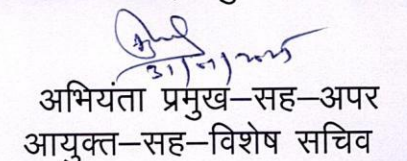 31/01/2025
अभियंता प्रमुख–सह–अपर
आयुक्त–सह–विशेष सचिव